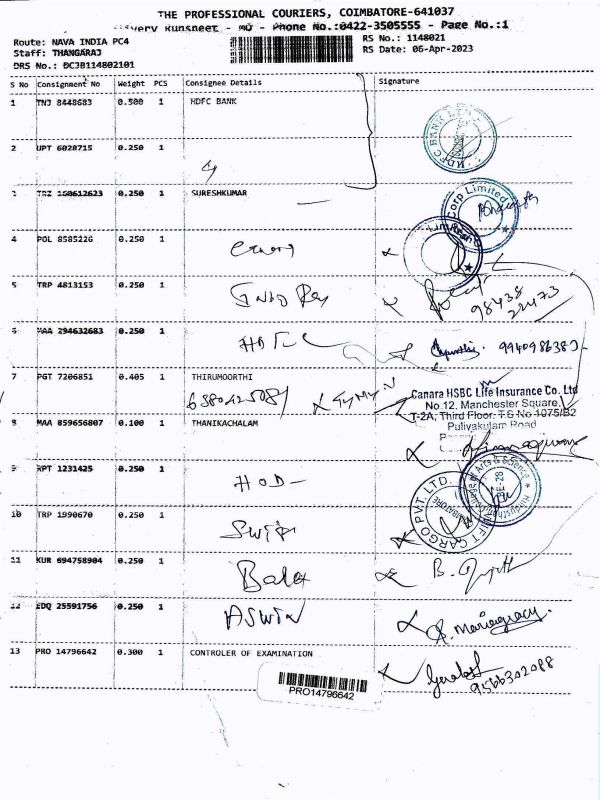 THE PROFESSIONAL COURIERS, COIMBATORE-641037
Delivery Runsheet - MO - Phone No.:0422-3505555 - Page No.:1
Route: NAVA INDIA PC4
Staff: THANGARAJ
DRS No.: DCJB114802101
RS No.: 1148021
RS Date: 06-Apr-2023
S No Consignment No Weight PCS Consignee Details Signature
1 TNJ 8448683 0.500 1 HDFC BANK
HDFC BANK LTD
2 UPT 6028715 0.250 1
3 160612623 0.250 1 SURESHKUMAR
Corp Limited
4 POL 8585226 0.250 1
5 TRP 4813153 0.250 1
98438
22473
6 MAA 294632683 0.250 1 HDFC
7 PGT 7206851 0.405 1 THIRUMOORTHI
Canara HSBC Life Insurance Co. Ltd
No.12, Manchester Square,
T-2A, Third Floor. T.S No 1075/B2
Puliyakulam Road
8 MAA 859656807 0.100 1 THANIKACHALAM
9 KPT 1231425 0.250 1 HOD
10 TRP 1990670 0.250 1 Swift
SWIFT CARGO PVT. LTD.
11 KUR 694758904 0.250 1 Bala
12 EDQ 25591756 0.250 1 ASWIN
13 PRO 14796642 0.300 1 CONTROLER OF EXAMINATION
9566302088
PRO14796642